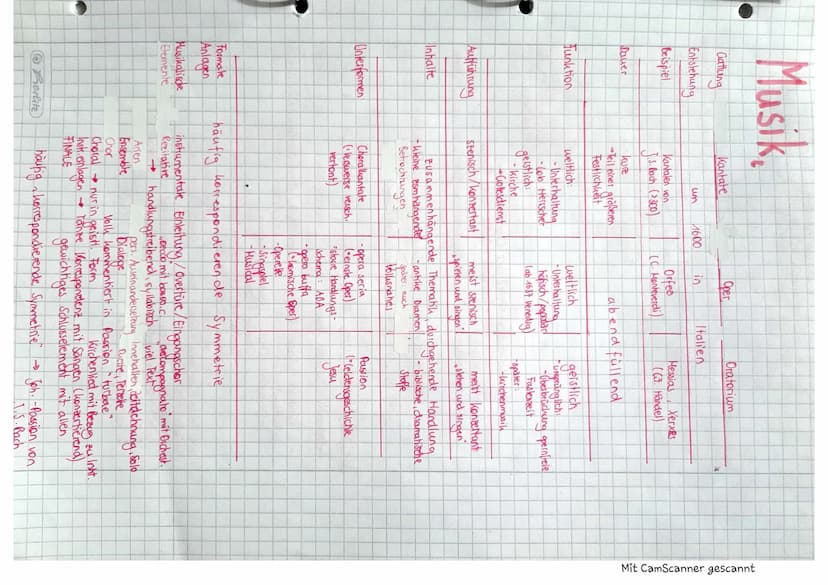 Musik
Gattung Kantate Oper Oratorium
Entstehung um 1600 in Italien
Beispiel Kantaten von J.S. Bach (>200) Orfeo (C. Monteverdi) Messias, Xerxes (G.F. Händel)
Dauer kurz
→ Teil einer größeren Festlichkeit
abendfüllend
Funktion weltlich:
- Unterhaltung
- Lob Herrscher
geistlich:
- Kirche
→ Gottesdienst
weltlich
- Unterhaltung
höfisch/populär
(ab 1637 Venedig)
geistlich
- ursprünglich:
Überbrückung opernfreie
Fastenzeit
- später:
- Kirchenmusik
Aufführung szenisch/konzertant meist szenisch
"spielen und singen"
meist konzertant
"stehen und singen"
Inhalte zusammenhängende Thematik, durchgehende Handlung
- kleine zusammenhängende
Betrachtungen
- antike Dramen,
später auch
Volksnahes
- biblische, dramatische
Stoffe
Unterformen Choralkantate
vertont)
- opera seria
(= ernste Oper)
schema: ABA
- opera buffa
(= komische Oper)
- Operette
- Singspiel
- Musical
Passion
(= Leidensgeschichte
Jesu
Formale
Anlagen
häufig korrespondierende Symmetrie
Musikalische
Elemente
instrumentale Einleitung/Ouvertüre/Eingangschor
Rezitative
"accompagnato" mit Orchest.
→ handlungstreibend, syllabisch, viel Text
Arien
Innehalten, Zeitdehnung, Solo
Ensemble Duette, Terzette
Dialoge
Chor Volk kommentiert in Passion "turbae"
Choral → nur in geistl. Form Kirchenlied mit Bezug zu Inhlt.
FINALE gewichtiges Schlusselement mit allen
häufig "korrespondierende Symmetrie" → Joh.-Passion von
J.S. Bach
Mit CamScanner gescannt